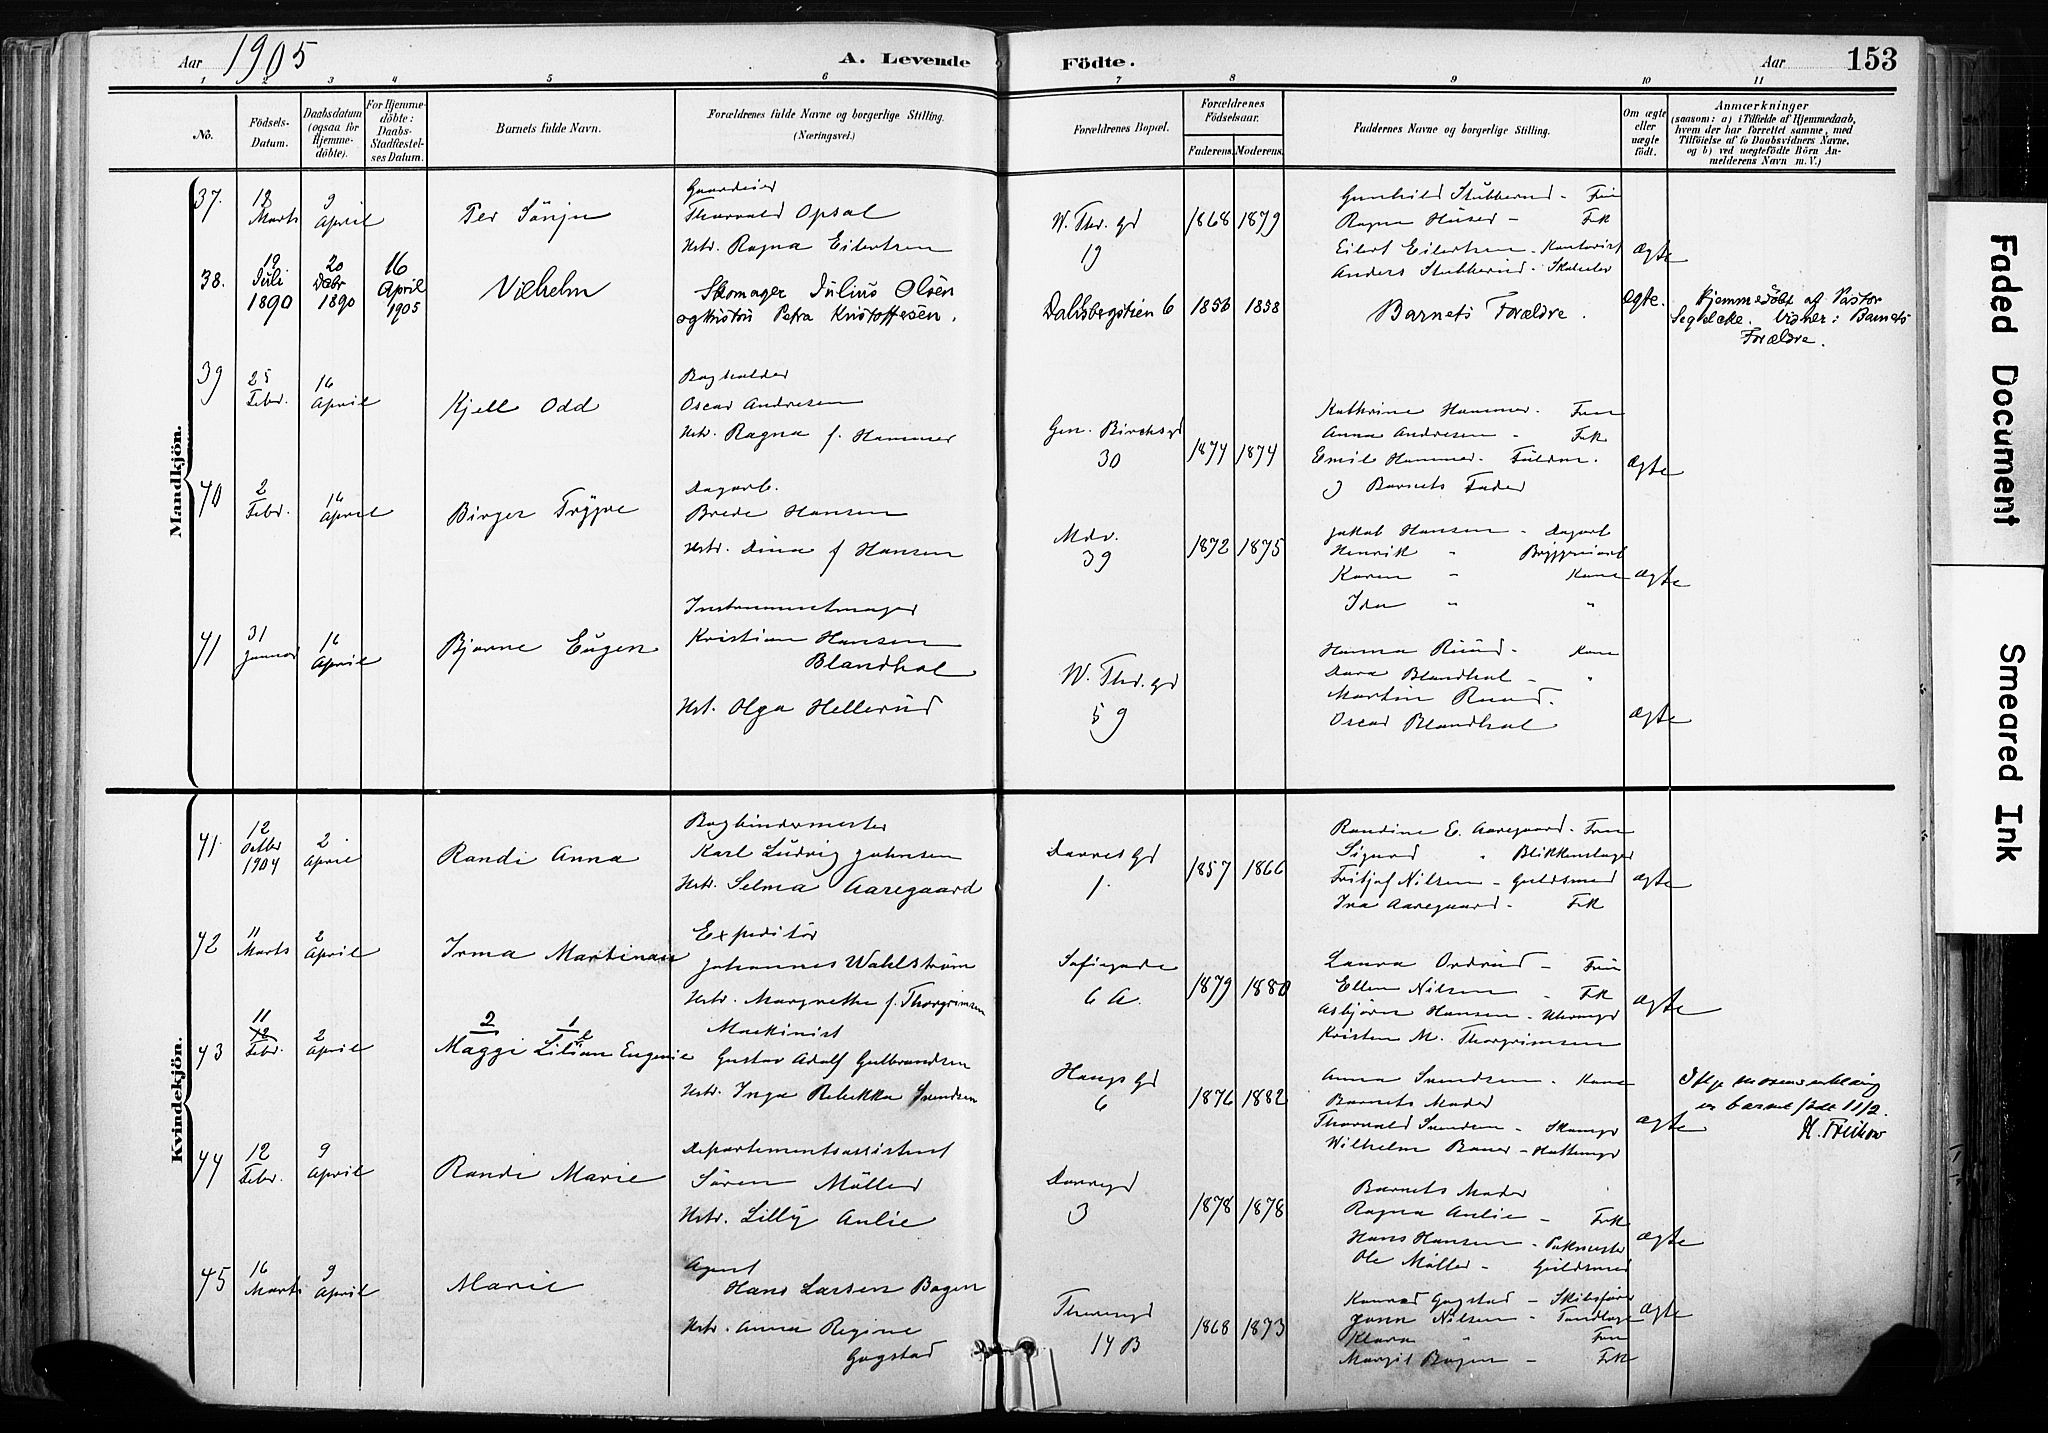 Aar 1905
A. Levende Födte.
Aar
153
1 2 3 4 5 6 7 8 9 10 11
No.
Födsels-
Datum.
Daabsdatum
(ogsaa for
Hjemme-
döbte).
For Hjemme-
döbte:
Daabs-
Stadfæstel-
ses Datum.
Barnets fulde Navn.
Forældrenes fulde Navne og borgerlige Stilling.
(Næringsvei.)
Forældrenes Bopæl.
Forældrenes
Födselsaar.
Faderens. Moderens.
Faddernes Navne og borgerlige Stilling.
Om ægte
eller
uægte
födt.
Anmærkninger
(saasom: a) i Tilfælde af Hjemmedaab,
hvem der har forrettet samme, med
Tilföielse af to Daabsvidners Navne,
og b) ved uægtefödte Börn An-
melderens Navn m. V.)
Mandkjön.
37.
Marts
9
April
Per
Gaardeier
Thorvald Opsal
Hstr. Ragna Eilertsen
W. Thr. gd
19
1868 1879
Gunhild Stubberud - Frue
Ragna Huser - Frk
Eilert Eilertsen - Kontorist
Anders Stubberud - Skoheler
Ægte
38.
19
Juli
1890
20
Debr
1890
16
April
1905
Vilhelm
Skomager Julius Olsen
og Hustru Petra Kristoffersen.
Dahlsbergstien 6
1856 1858
Barnets Forældre.
Ægte.
Hjemmedöbt af Pastor
Segelcke. Vidner: Barnets
Forældre.
39
25
Febr.
16
April
Kjell Odd
Bogholder
Oscar Andresen
Hstr. Ragna f. Hammer
Gen. Birchsgd
30
1874 1874
Kathrine Hammer. Frue
Anna Andresen - Frk
Emil Hammer.
og Barnets Fader
Ægte
40
2
Febr.
16
April
Birger Trygve
Dagarb.
Brede Hansen
Hstr. Dina f Hansen
Mdv.
39
1872 1875
Jakob Hansen - Dagarb
Henrik " Bryggeriarb
Karen " Kone
Ida " "
Ægte
41
31
Januar
16
April
Bjarne Eugen
Instrumentmager
Kristian Hansen
Blandhol
Hst. Olga Hellerud
W. Thr. gd
59
Hanna Ruud - Kone
Dora Blandhol - "
Martin Ruud.
Oscar Blandhol
Ægte
Kvindekjön.
41.
12
Octbr
1904
2
April
Randi Anna
Bogbindermester
Karl Ludvig Johnsen
Hstr. Selma Aaregaard
Darres Gd
1.
1857 1866
Randine E. Aaregaard - Frue
Sigurd " Blikkenslager
Fritjof Nilsen - Guldsmed
Ina Aaregaard - Frk
Ægte
42
11
Marts
2
April
Irma Martinau
Expeditör
Johannes Wahlström
Hstr. Margrethe f. Thorgrimsen
Sofiegade
6 A.
1879 1880
Laura Ordrud - Frue
Ellen Nilsen - Frk
Asbjörn Hansen - Uhrmgr
Kristen M. Thorgrimsen
Ægte
43
11
12
Febr.
2
April
2 1
Maggi Lilian Eugenie
Maskinist
Gustav Adolf Gulbrandsen
Hstr. Inga Rebekka Svendsen
Haugs Gd
6
1876 1882
Anna Svendsen - Kone
Barnets Moder
Thorvald Svendsen - Skomgr
Wilhelm Bauer - Hattemgr
Ægte
Iflge
er barnet födt 11/2.
44
12
Febr.
9
April
Randi Marie
Departementsassistent
Sören Möller
Hstr. Lilly Anlie
Darregd
3
1878 1878
Barnets Moder
Ragna Anlie - Frk
Hans Hansen - Pakmester
Ole Möller - Guldsmed
Ægte
45
16
Marts
9
April
Marie
Agent
Hans Larsen Bogen
Hstr. Anna Regine
Gogstad
Theresegd
14 B
1868 1873
Konrad Gogstad - Skibsförer
Jonn Nilsen - Tandlæge
Klara " Frue
Margit Bogen - Frk
Ægte
Faded Document
Smeared Ink